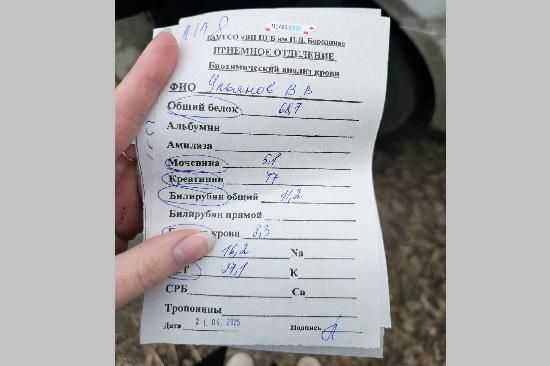 ГАУЗ СО «ВП ЦГБ им П.Д. Бородина»
ПРИЕМНОЕ ОТДЕЛЕНИЕ
Биохимический анализ крови
ФИО Ульянов В В
Общий белок
Альбумин
Амилаза
Мочевина 5,1
Креатинин 77
Билирубин общий 11,2
Билирубин прямой
крови 8,3
16,2 Na
27,1 K
СРБ Ca
Тропонины
Дата 2025 Подпись